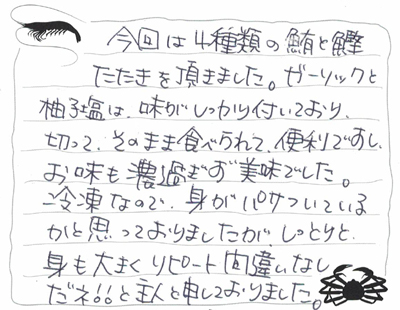 今回は4種類の鮪と鰹
たたきを頂きました。ガーリックと
柚子塩は、味がしっかり付いており、
切って、そのまま食べられて、便利ですし、
お味も濃過ぎず美味でした。
冷凍なので、身がパサついている
かと思っておりましたが、しっとりと、
身も大きくリピート間違いなし
だネ!!と主人と申しておりました。